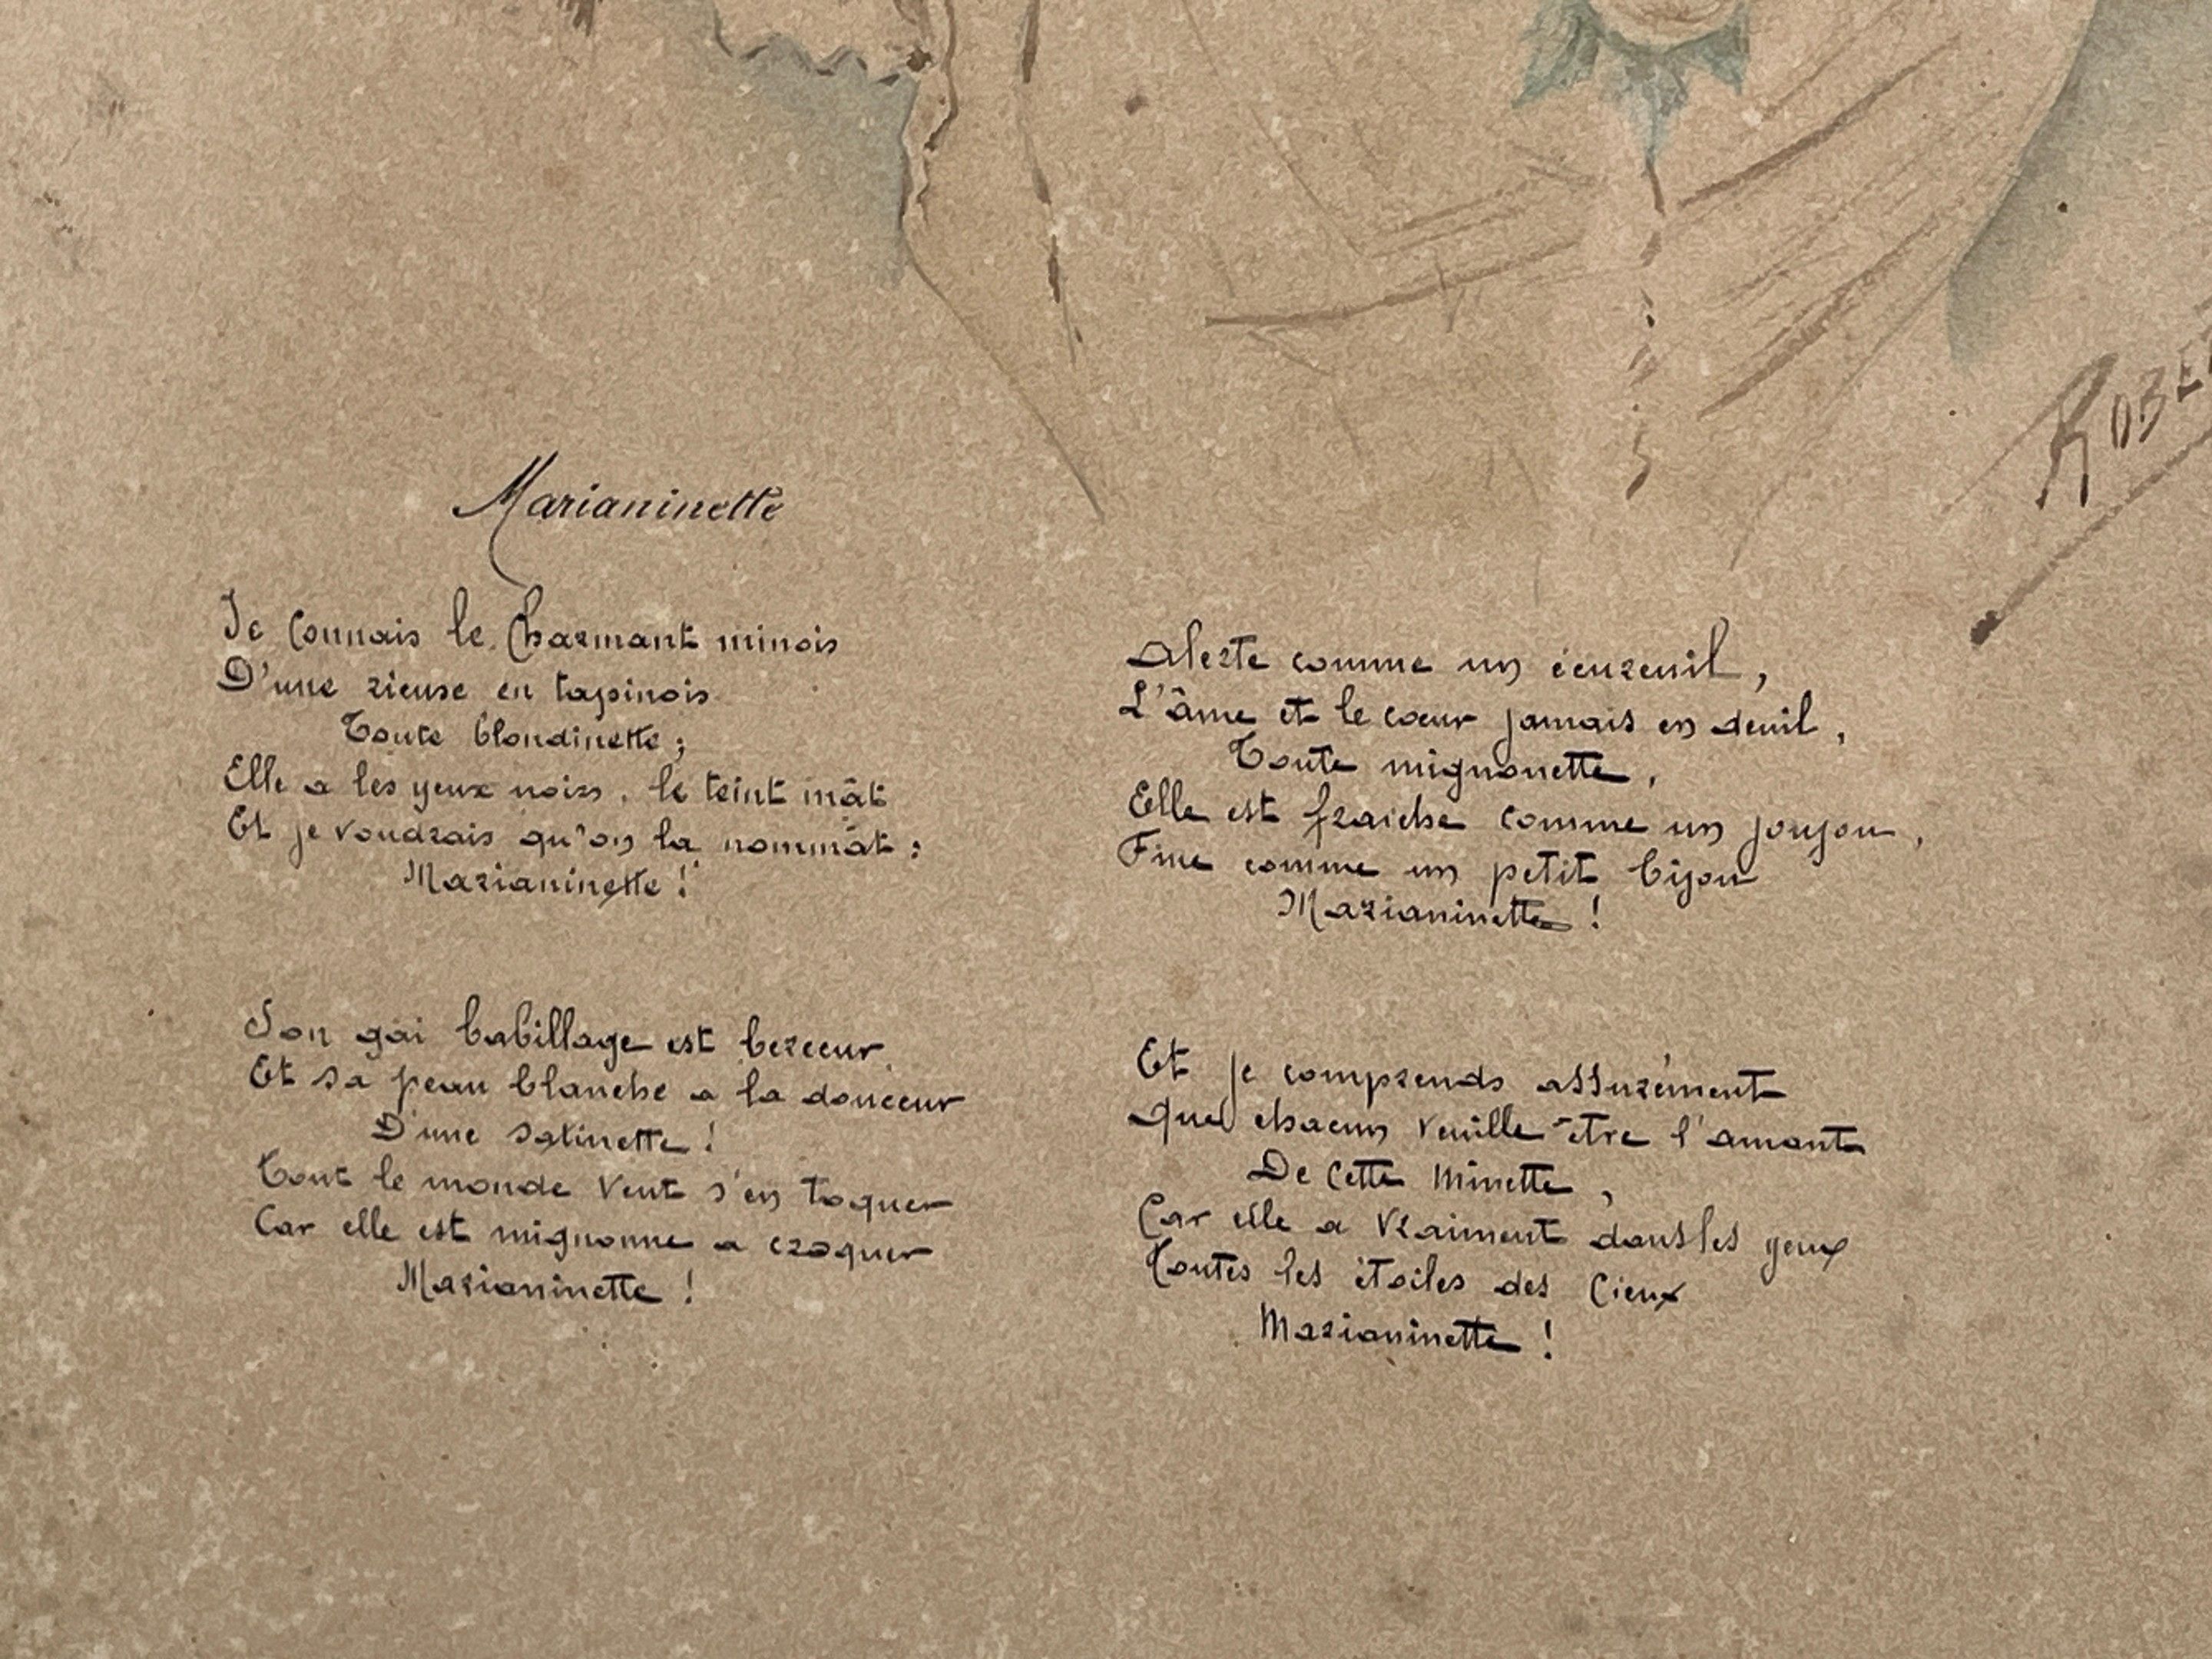 Marianinette
Je Connais le Charmant minois
D'une rieuse en tapinois
Toute blondinette ;
Elle a les yeux noirs, le teint mât
Et je voudrais qu'on la nommât :
Marianinette !
Son gai babillage est berceur
Et sa peau blanche a la douceur
D'une satinette !
Tout le monde veut s'en toquer
Car elle est mignonne a croquer
Marianinette !
Alerte comme un écureuil,
L'âme et le cœur jamais en deuil,
Toute mignonette,
Elle est fraiche comme un joujou,
Fine comme un petit bijou
Marianinette !
Et je comprends assurément
Que chacun veuille être l'amant
De cette Minette,
Car elle a vraiment dans les yeux
Toutes les étoiles des Cieux
Marianinette !
ROBE